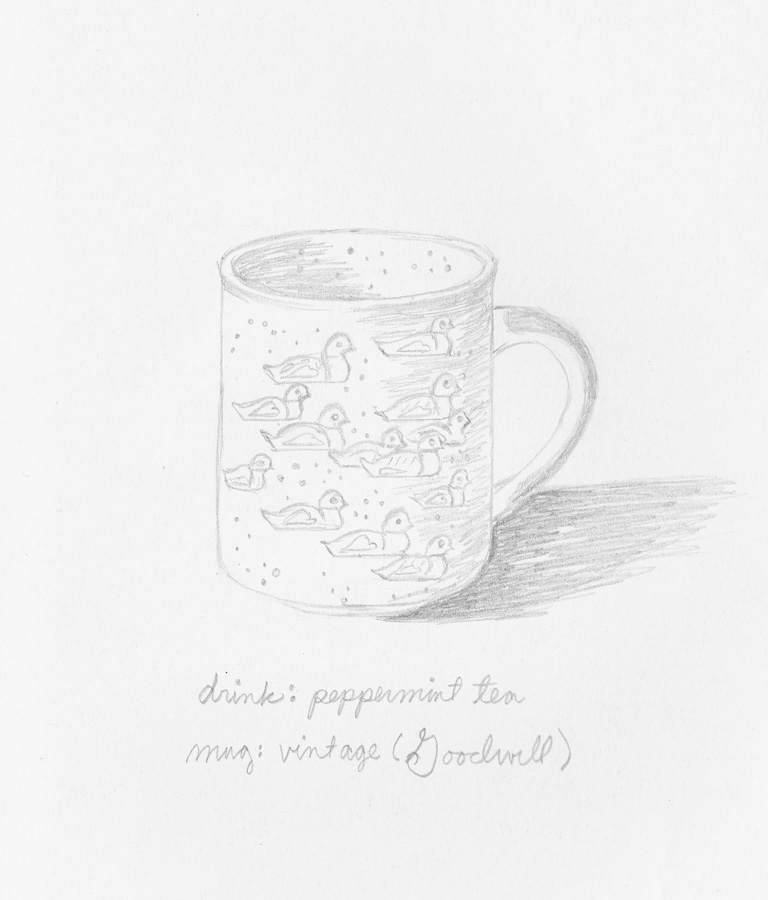 drink: peppermint tea
mug: vintage (Goodwill)